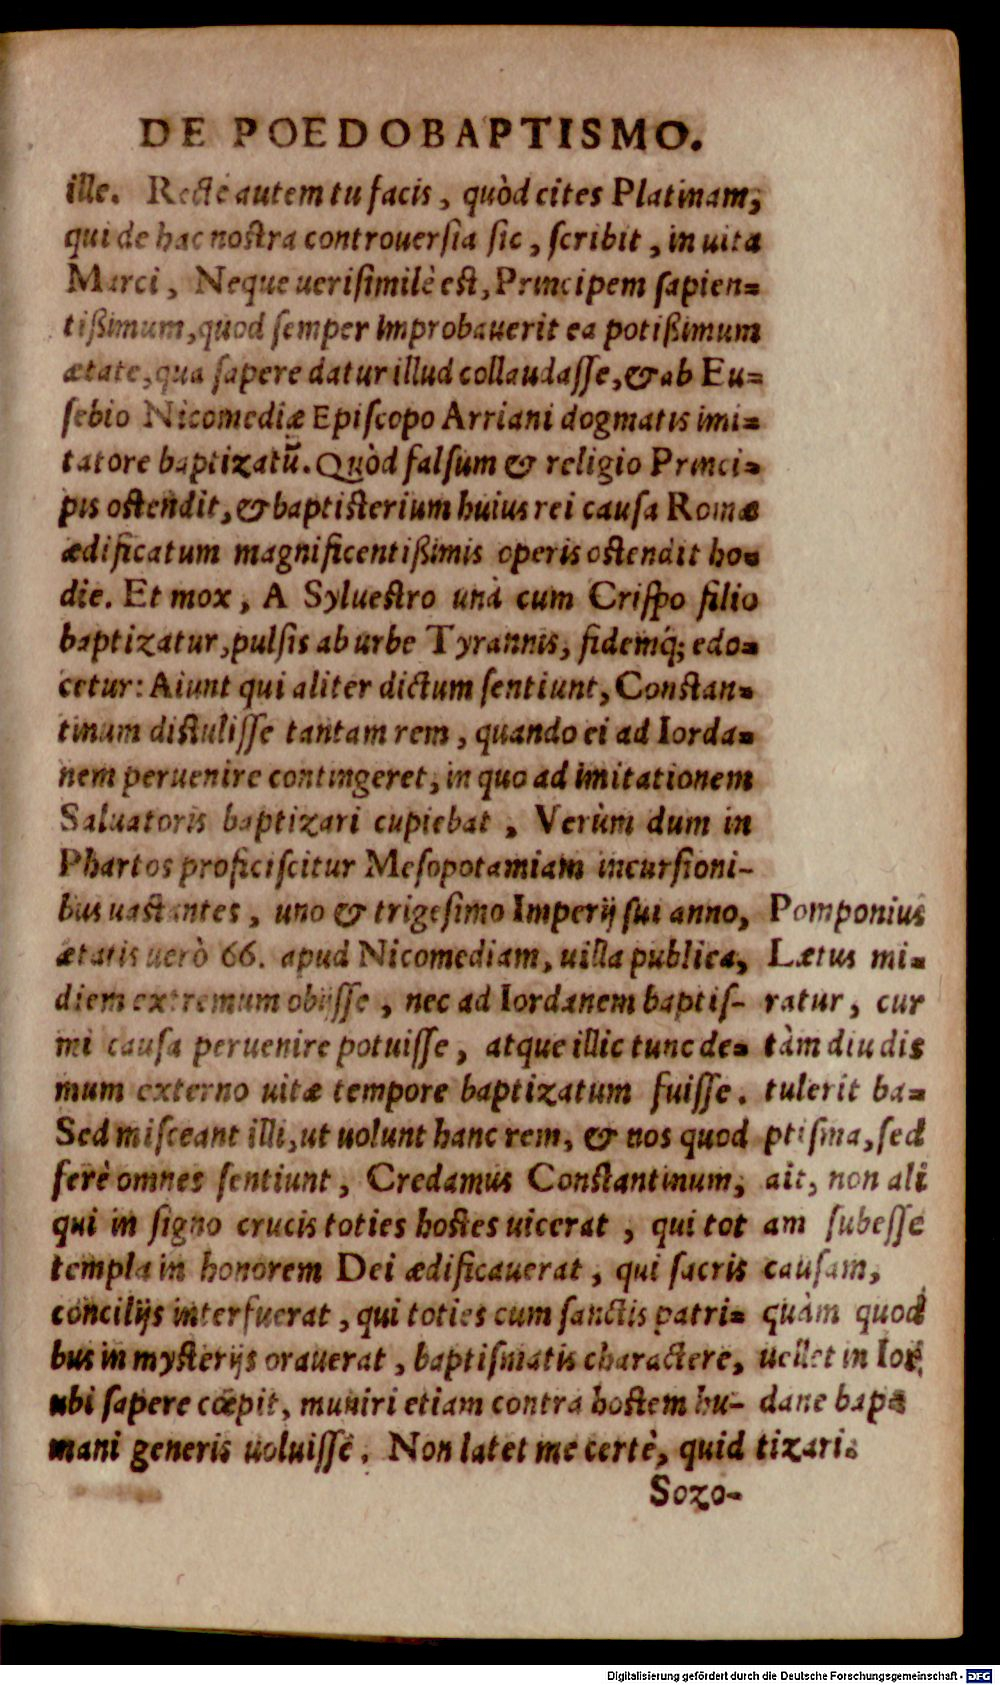 DE POEDOBAPTISMO.
ille. Rectè autem tu facis, quòd cites Platinam,
qui de hac nostra controuersia sic, scribit, in uita
Marci, Neque uerisimilè est, Principem sapien-
tißimum, quod semper improbauerit ea potißimum
ætate, qua sapere datur illud collaudasse, & ab Eu-
sebio Nicomediæ Episcopo Arriani dogmatis imi-
tatore baptizatū. Quòd falsum & religio Princi-
pis ostendit, & baptisterium huius rei causa Romæ
ædificatum magnificentißimis operis ostendit ho-
die. Et mox, A Syluestro unà cum Crispo filio
baptizatur, pulsis ab urbe Tyrannis, fidemq́; edo-
cetur: Aiunt qui aliter dictum sentiunt, Constan-
tinum distulisse tantam rem, quando ei ad Iorda-
nem peruenire contingeret, in quo ad imitationem
Saluatoris baptizari cupiebat, Verùm dum in
Phartos proficiscitur Mesopotamiam incursioni-
bus uastantes, uno & trigesimo Imperij sui anno,
ætatis uerò 66. apud Nicomediam, uilla publica,
diem extremum obijsse, nec ad Iordanem baptis-
mi causa peruenire potuisse, atque illic tunc de-
mum externo uitæ tempore baptizatum fuisse.
Sed misceant illi, ut uolunt hanc rem, & nos quod
ferè omnes sentiunt, Credamus Constantinum,
qui in signo crucis toties hostes uicerat, qui tot
templa in honorem Dei ædificauerat, qui sacris
concilijs interfuerat, qui toties cum sanctis patri-
bus in mysterijs orauerat, baptismatis charactere,
ubi sapere cœpit, muniri etiam contra hostem hu-
mani generis uoluisse. Non latet me certè, quid
Sozo-
Pomponius
Lætus mi-
ratur, cur
tàm diu dis
tulerit ba-
ptisma, sed
ait, non ali
am subesse
causam,
quàm quod
uellet in Ior
dane bap-
tizari.
Digitalisierung gefördert durch die Deutsche Forschungsgemeinschaft - DFG